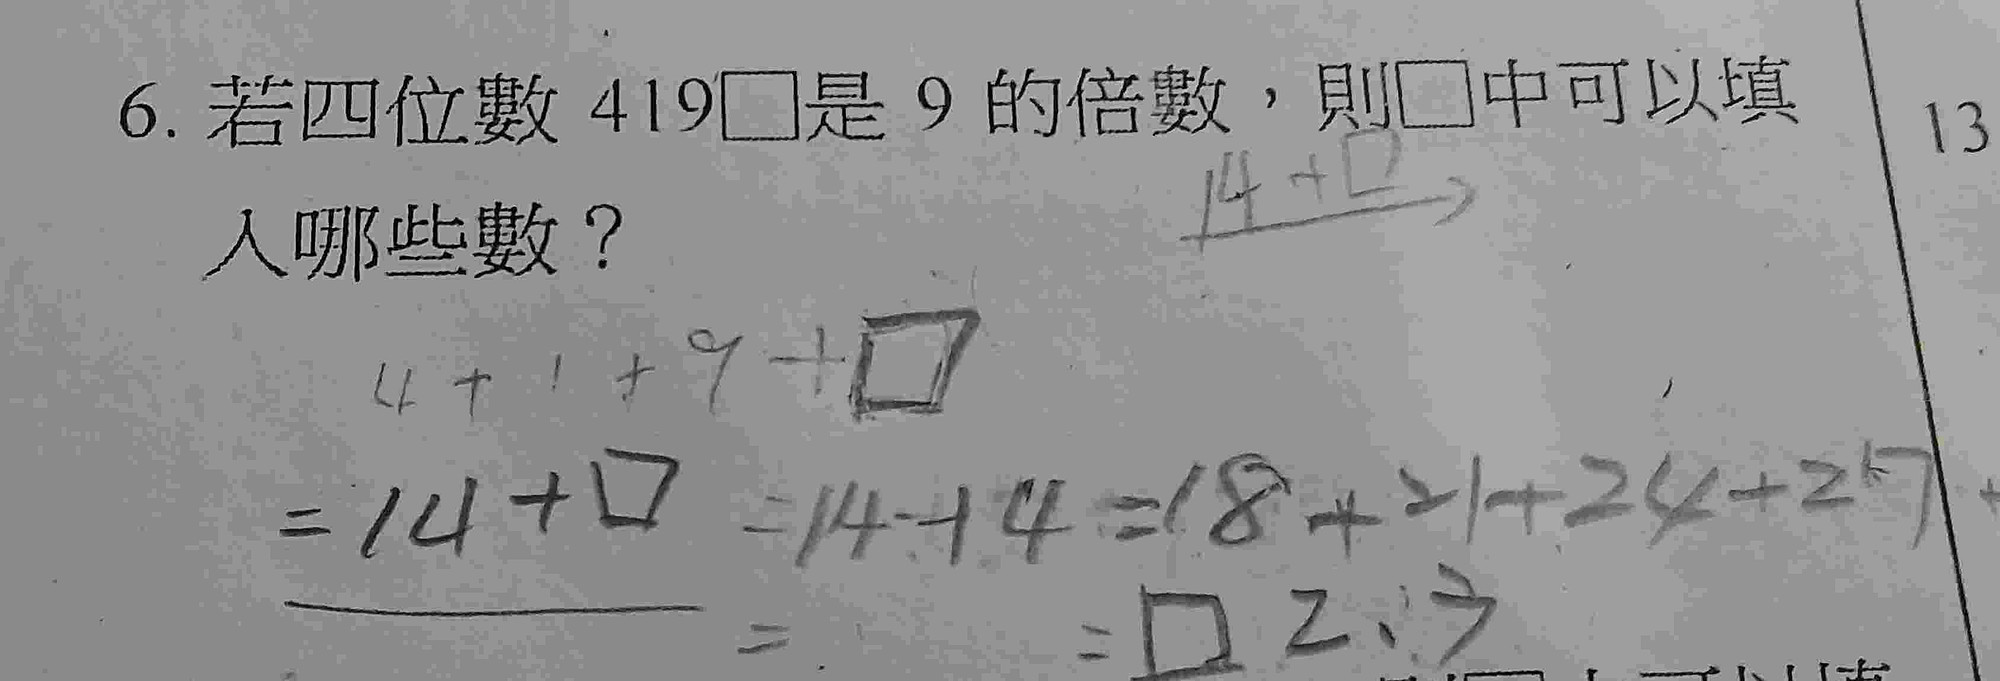 6. 若四位數 419□是 9 的倍數，則□中可以填
13
入哪些數？
14+□
4+1+9+□
=14+□ =14+4=18+21+24+27+
= =□ 2、3